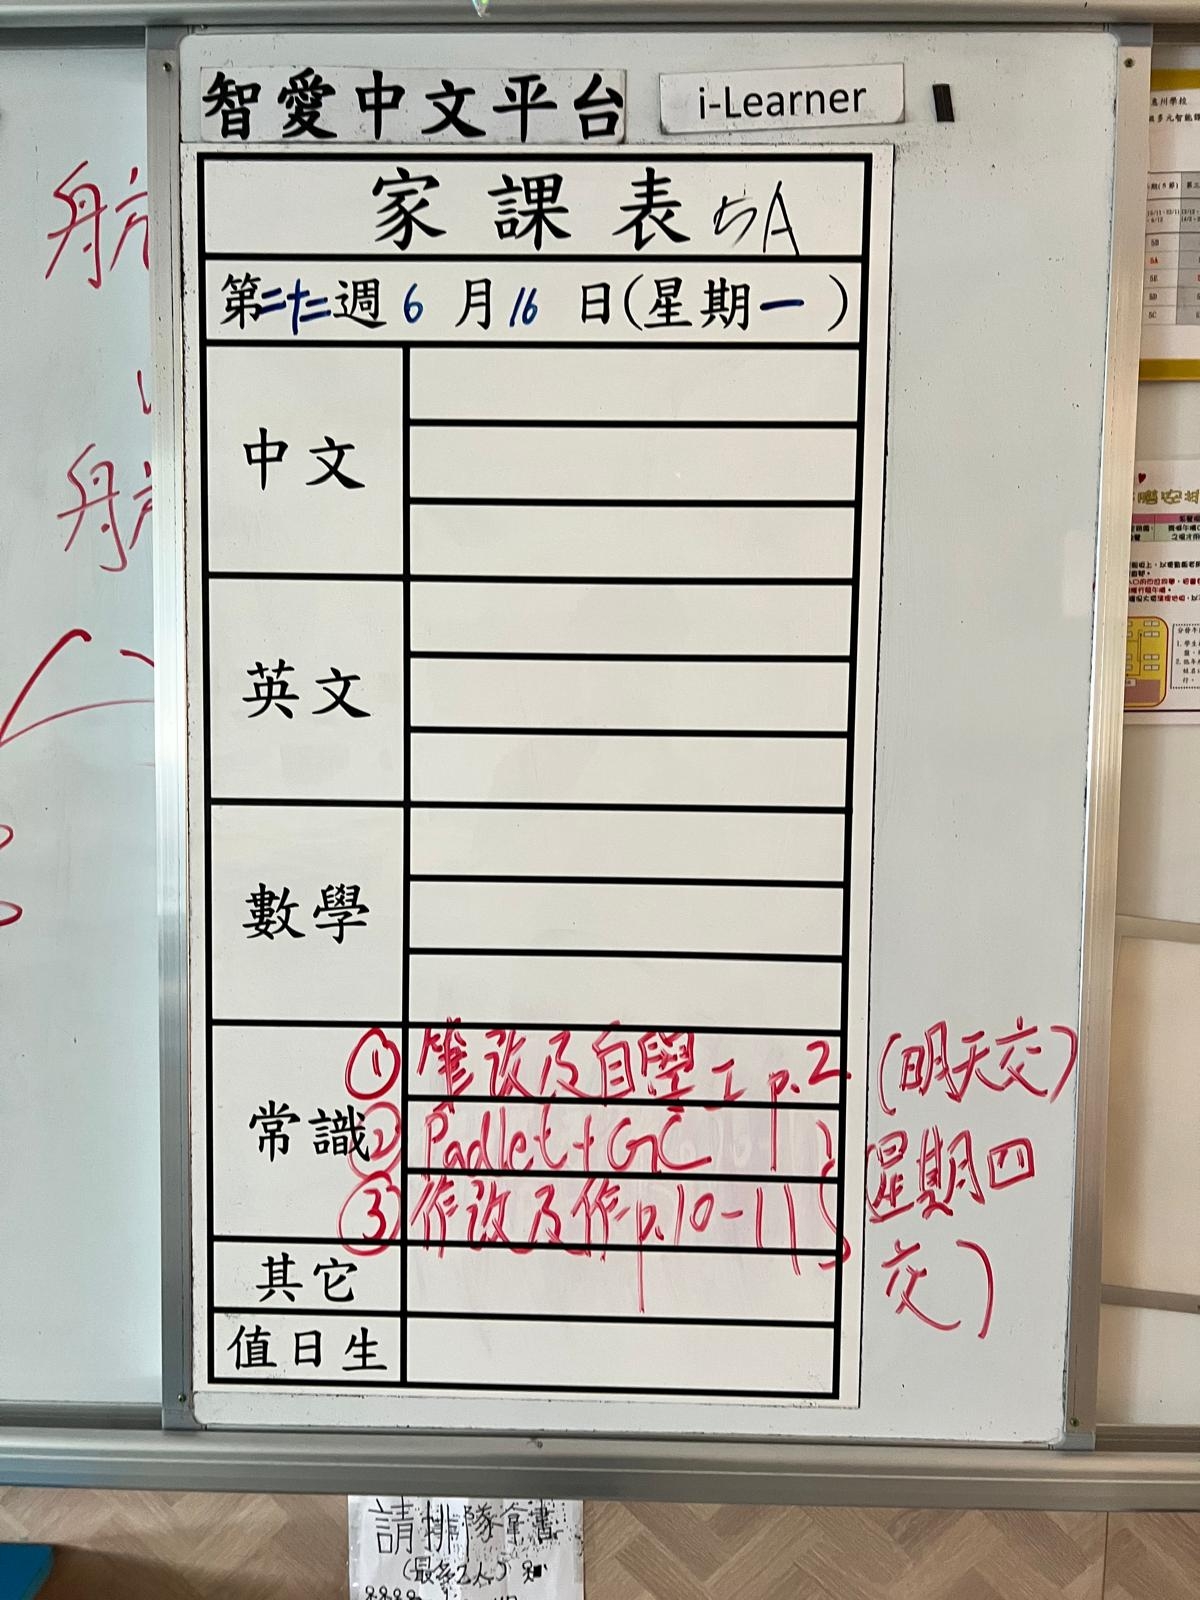 智愛中文平台
i-Learner
家課表 5A
第二十二週 6 月 16 日(星期一)
中文
英文
數學
常識
① 筆改及自學 p.2 (明天交)
② Padlet + GC
③ 作改及作p.10-11
星期四
交)
其它
值日生
請排隊拿書
5B
5A
5E
5D
5C
航